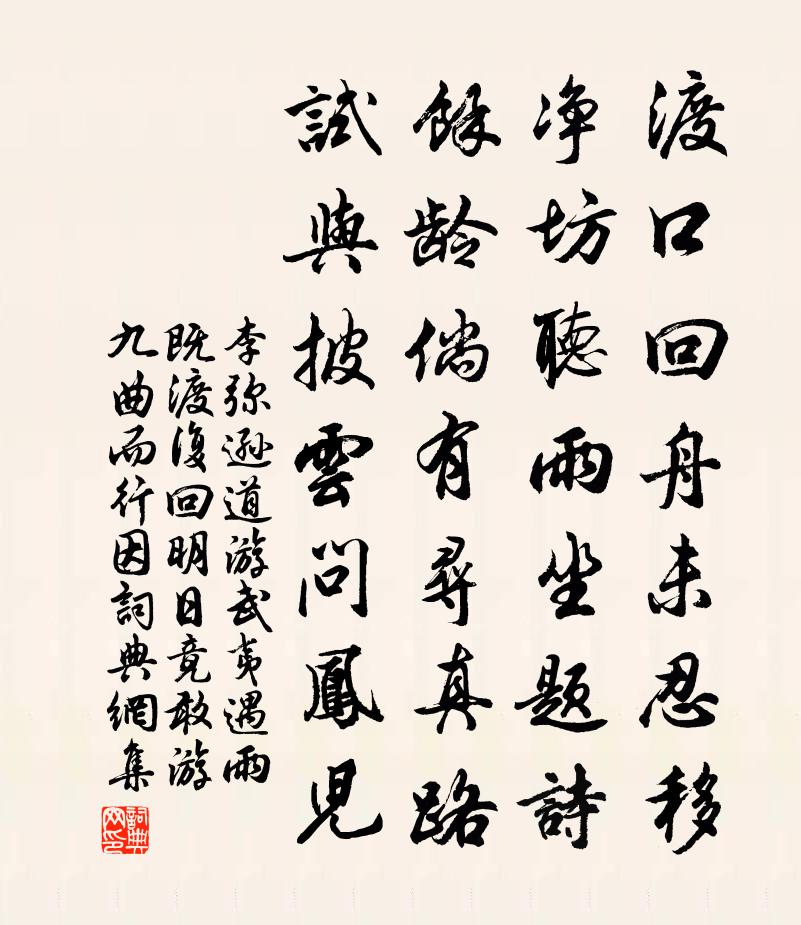 渡口回舟未忍移
净坊聽雨坐题詩
餘龄倘有尋真路
試與披雲問鳳児
李弥遜道游武夷遇雨
既渡復回明日竟敢游
九曲而行因詞典網集
詞典
网印